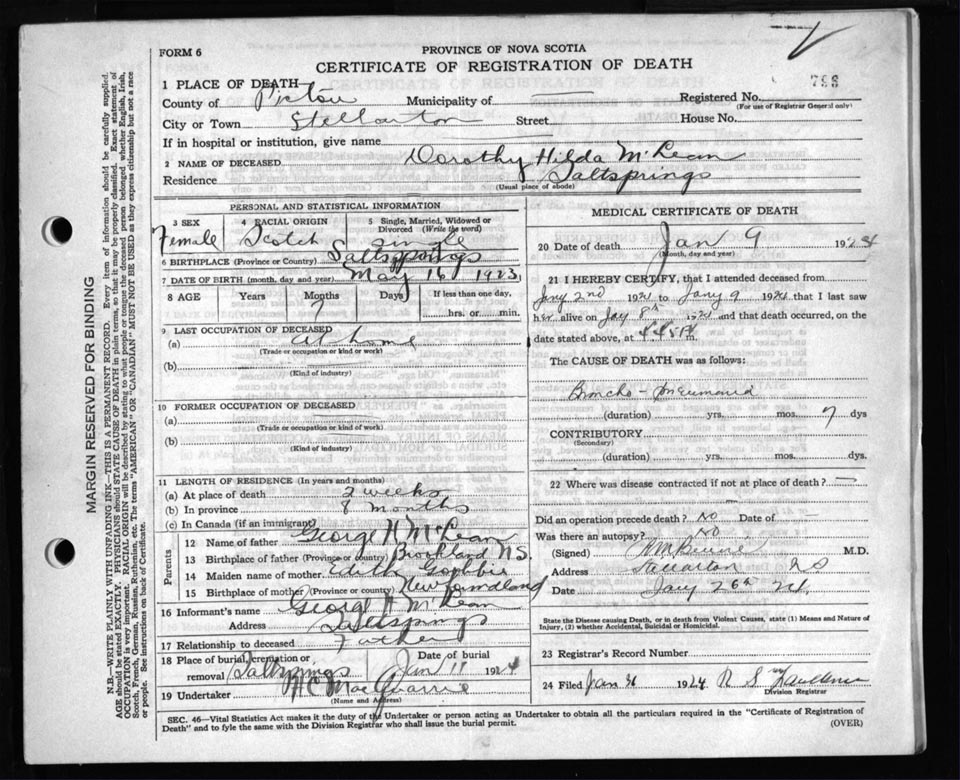 FORM 6
PROVINCE OF NOVA SCOTIA
CERTIFICATE OF REGISTRATION OF DEATH
798
1 PLACE OF DEATH
County of Pictou Municipality of Registered No.
(For use of Registrar General only)
City or Town Stellarton Street: House No.
If in hospital or institution, give name
2 NAME OF DECEASED Dorothy Hilda McLean
Residence Saltsprings
(Usual place of abode)
PERSONAL AND STATISTICAL INFORMATION
3 SEX Female
4 RACIAL ORIGIN Scotch
5 Single, Married, Widowed or Divorced (Write the word) Single
6 BIRTHPLACE (Province or Country) Saltsprings
7 DATE OF BIRTH (month, day and year) May 16, 1923
8 AGE Years Months Days If less than one day?
7
hrs. or min.
9 LAST OCCUPATION OF DECEASED
(a) at home
(Trade or occupation or kind or work)
(b)
(Kind of industry)
10 FORMER OCCUPATION OF DECEASED
(a)
(Trade or occupation or kind of work)
(b)
(Kind of industry)
11 LENGTH OF RESIDENCE (In years and months)
(a) At place of death 2 weeks
(b) In province 8 months
(c) In Canada (if an immigrant)
Parents
12 Name of father George H McLean
13 Birthplace of father (Province or country) Brookland N.S.
14 Maiden name of mother Edith
15 Birthplace of mother (Province or country) Newfoundland
16 Informant's name George H McLean
Address Saltsprings
17 Relationship to deceased Father
18 Place of burial, cremation or removal Saltsprings
Date of burial Jan 11 1924
19 Undertaker H C MacQuarrie
(Name and Address)
MEDICAL CERTIFICATE OF DEATH
20 Date of death Jan 9 1924
(Month, day and year)
21 I HEREBY CERTIFY, that I attended deceased from
Jany 2nd 1924 to Jany 9 1924 that I last saw
her alive on Jay 8th 1924 and that death occurred, on
date stated above, at m.
The CAUSE OF DEATH was as follows:
Broncho-pneumonia
(duration) yrs. mos. 7 dys
CONTRIBUTORY
(Secondary)
(duration) yrs. mos. dys.
22 Where was disease contracted if not at place of death?
Did an operation precede death? No Date of
Was there an autopsy? No
(Signed) M.D.
Address Stellarton N S
Date Jany 26th 24
State the Disease causing Death, or in death from Violent Causes, state (1) Means and Nature of
Injury, (2) whether Accidental, Suicidal or Homicidal.
23 Registrar's Record Number
24 Filed Jan 31 1924 R S
Division Registrar
SEC. 46—Vital Statistics Act makes it the duty of the Undertaker or person acting as Undertaker to obtain all the particulars required in the "Certificate of Registration of
Death" and to fyle the same with the Division Registrar who shall issue the burial permit. (OVER)
MARGIN RESERVED FOR BINDING
N.B.—WRITE PLAINLY WITH UNFADING INK—THIS IS A PERMANENT RECORD. Every item of information should be carefully supplied.
AGE should be stated EXACTLY. PHYSICIANS should STATE CAUSE OF DEATH in plain terms, so that it may be properly classified. Exact statement of
OCCUPATION is very important. RACIAL ORIGIN will be described by stating to what people or tongue the deceased person belonged whether English, Irish,
Scotch, French, German, Russian, Ruthenian, etc. The terms "AMERICAN" OR "CANADIAN" MUST NOT BE USED as they express citizenship but not a race
or people. See instructions on back of Certificate.